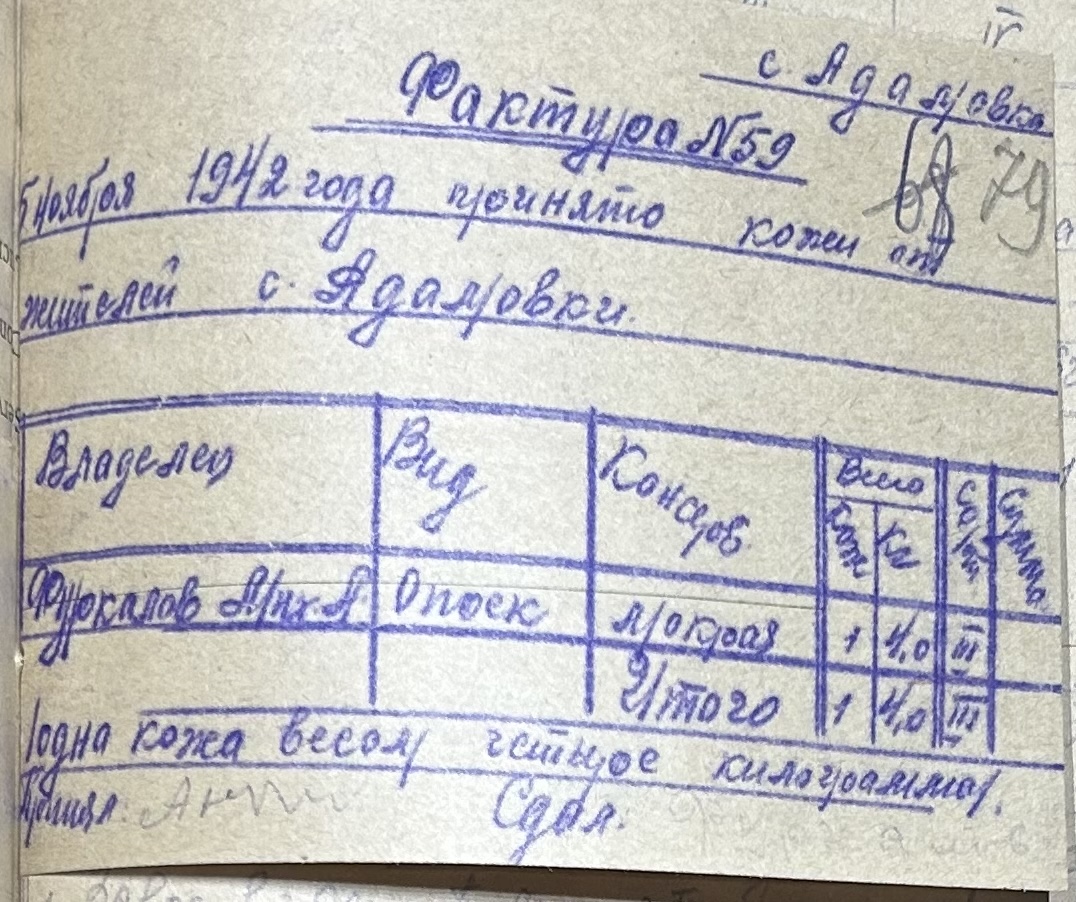 с. Адамовка
Фактура №59
68 79
5 ноября 1942 года принято кожи от
жителей с. Адамовки.
Владелец Вид Консерв. Всего Сорт Сумма
Кож Кг
Опоек мокрая 1 4,0 III
Итого 1 4,0 III
/одна кожа весом четыре килограмма/.
Принял: Сдал: